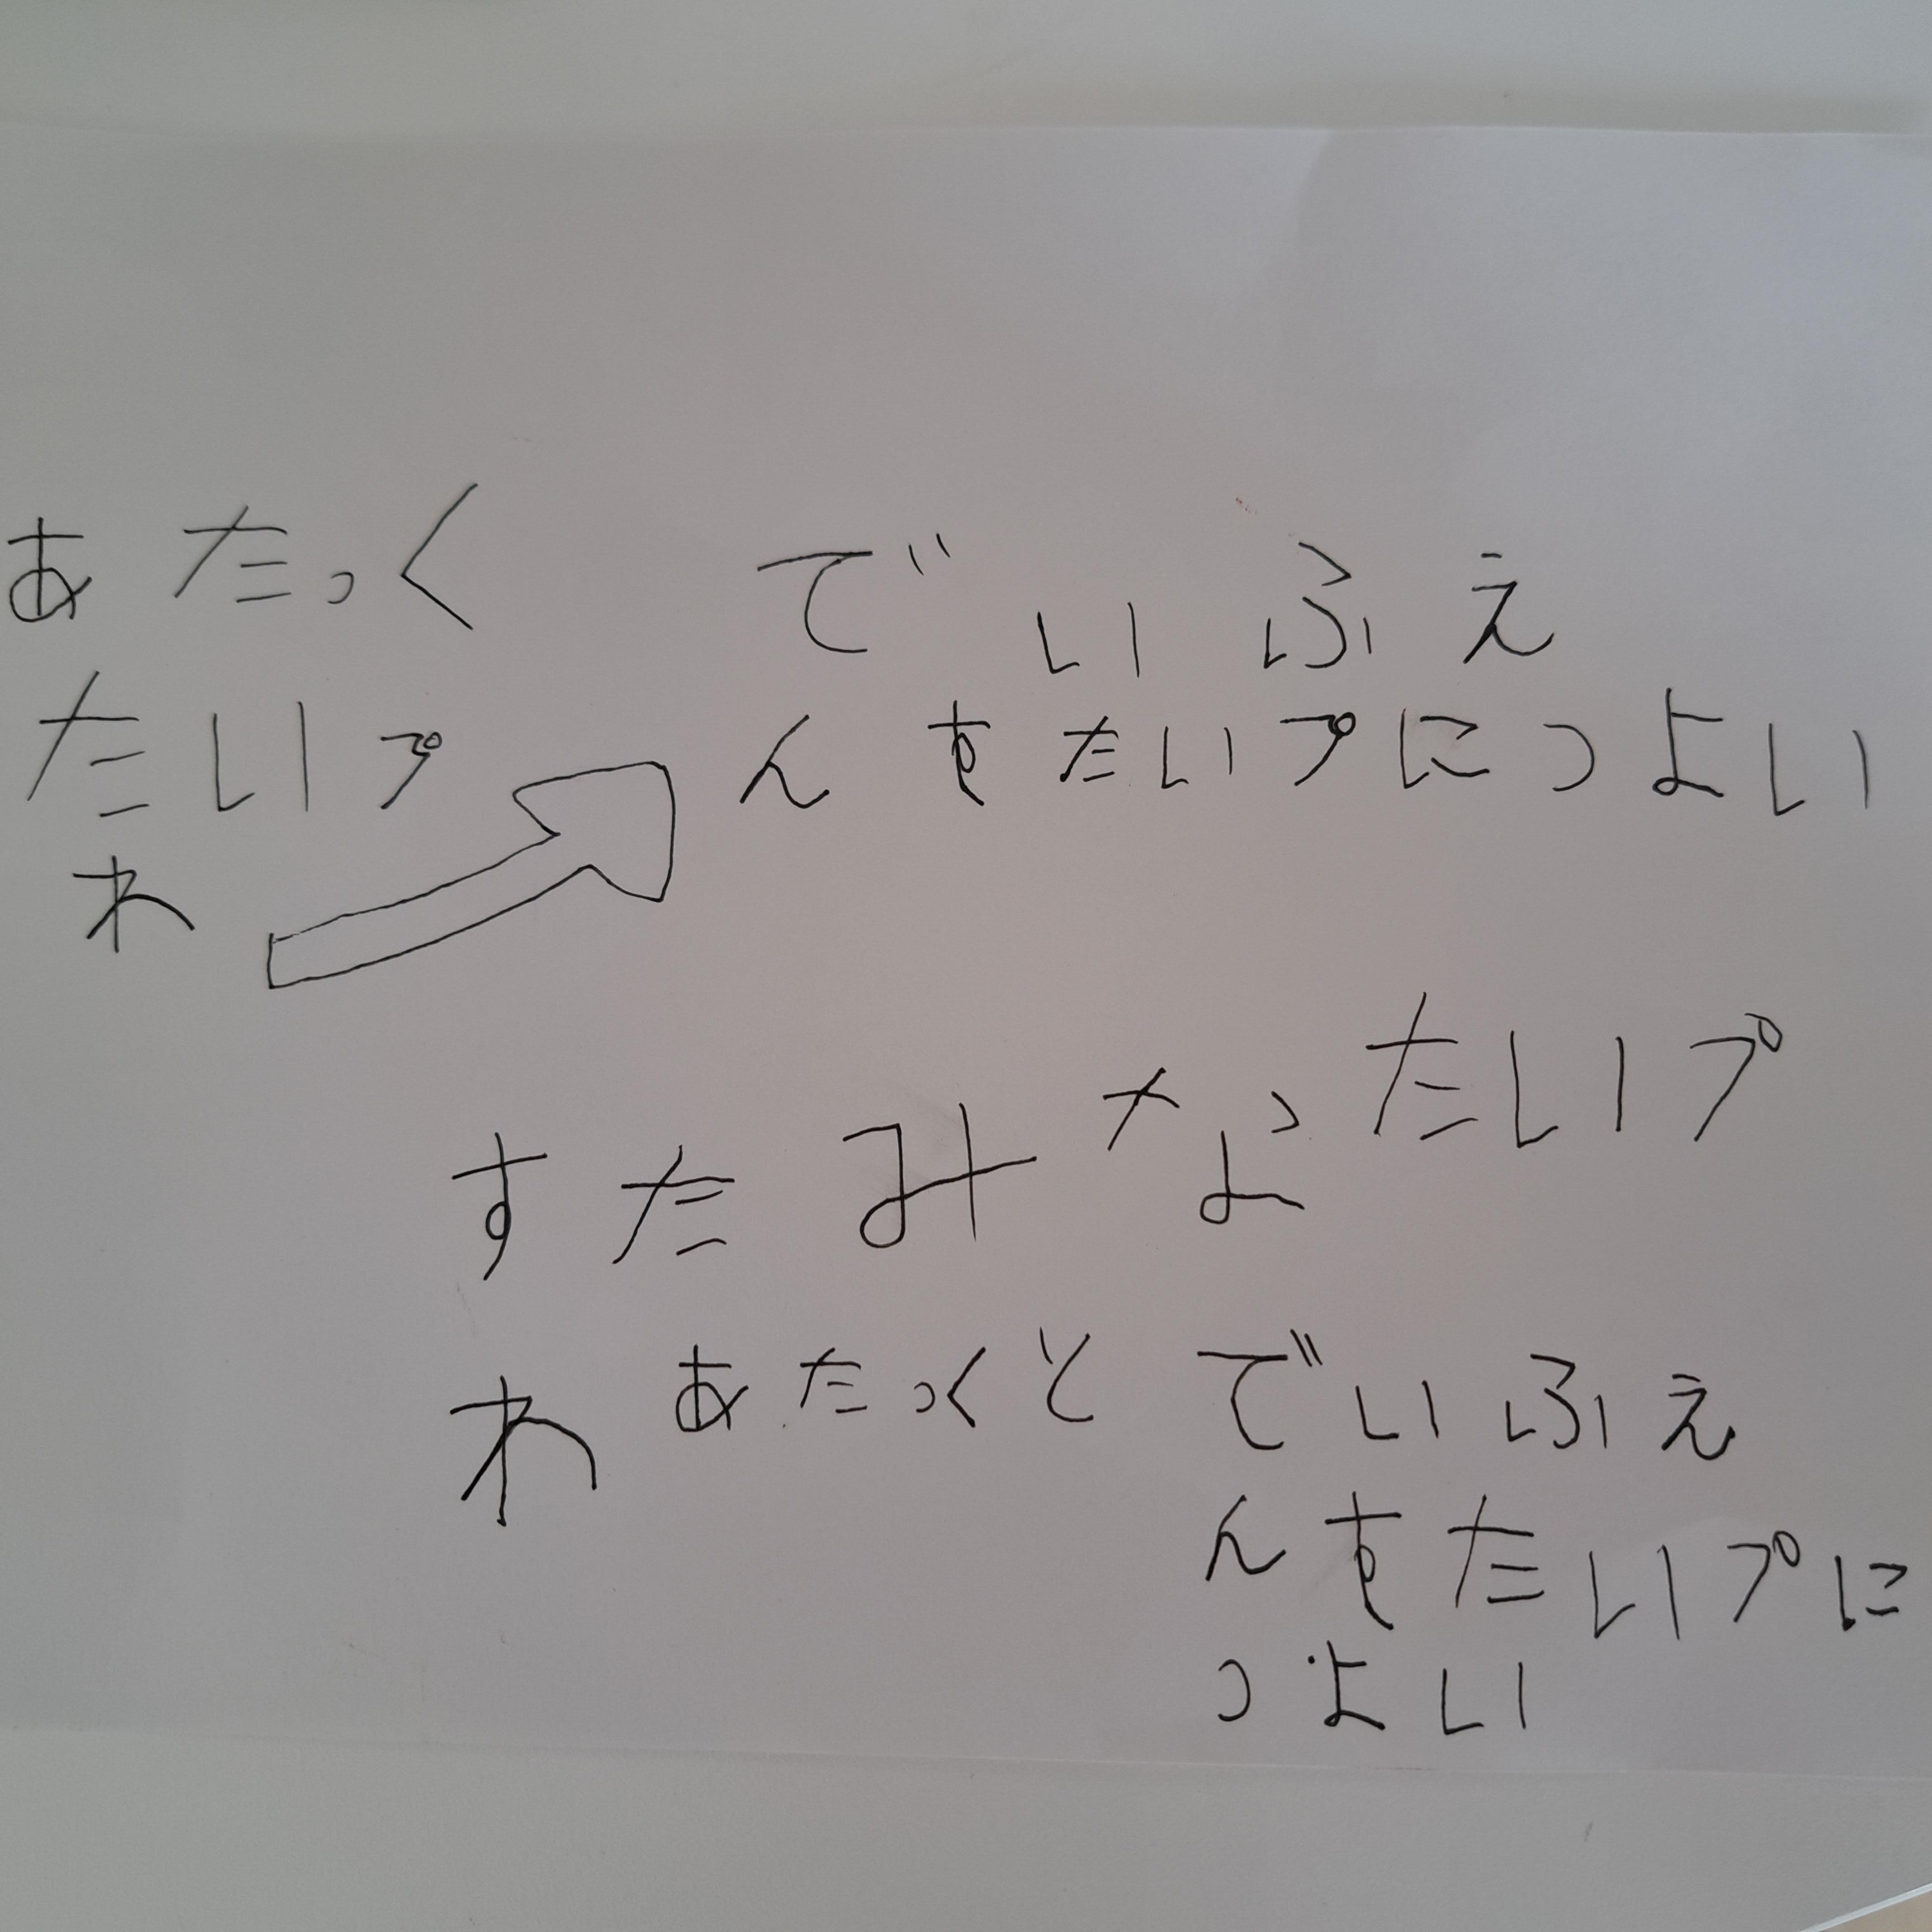 あたっく
たいプ
わ
でいふえ
んすたいプにつよい
すたみなたいプ
わ あたっくとでいふえ
んすたいプに
つよい